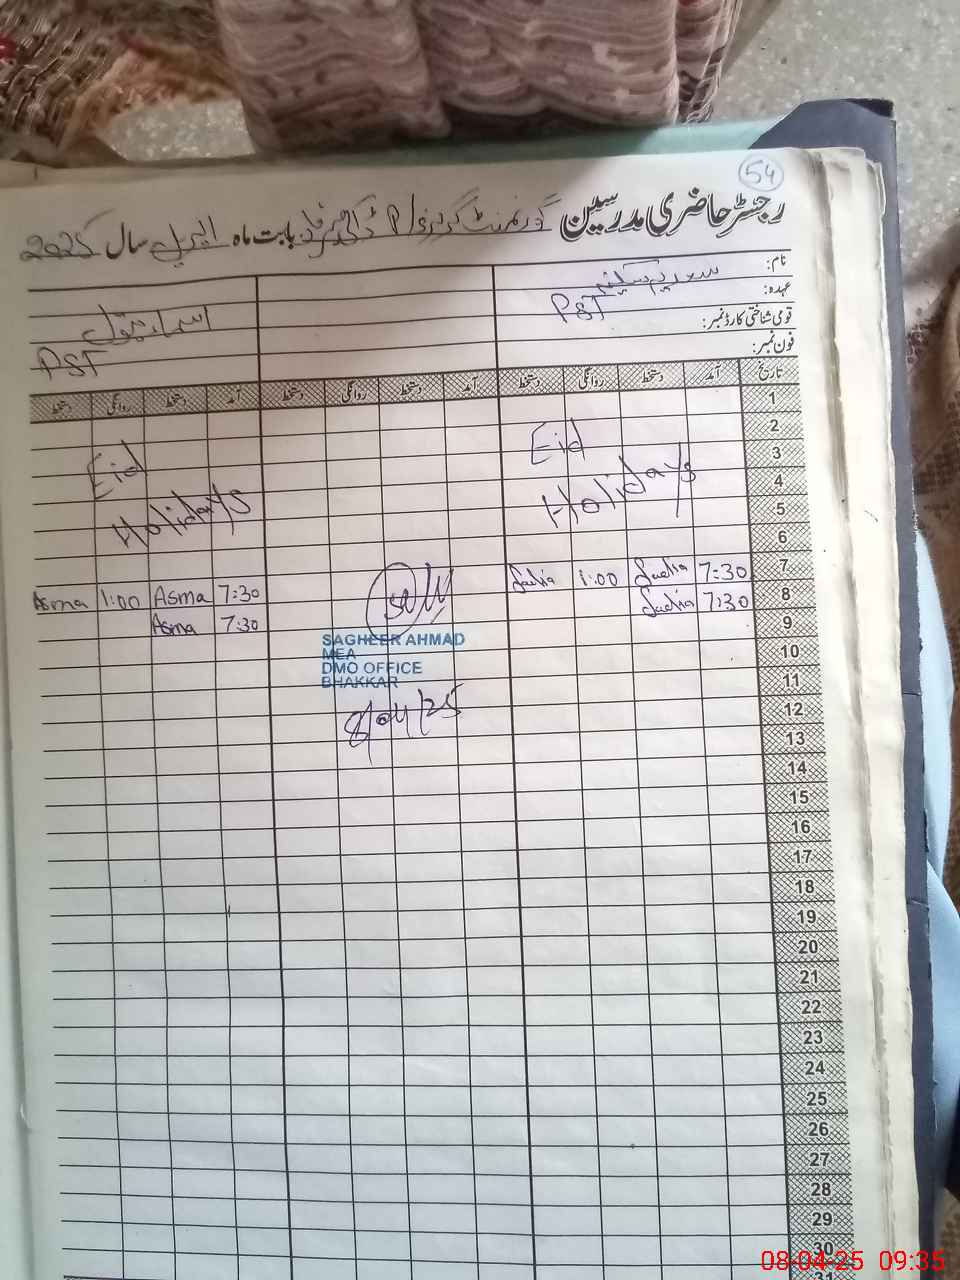 54
رجسٹر حاضری مدرسین گورنمنٹ گرلز P/ بابت ماہ اپریل سال 2025
نام:
عہدہ: PST
قومی شناختی کارڈ نمبر:
فون نمبر:
اسماء بتول
PST
تاریخ آمد دستخط روانگی دستخط آمد دستخط روانگی دستخط آمد دستخط روانگی دستخط
1
2
3
4
5
6
Eid
Holidays
Eid
Holidays
7 7:30 Sadia 1:00 Sadia
8 7:30 Sadia
7:30 Asma 1:00 Asma
7:30 Asma
9
10
11
12
13
14
15
16
17
18
19
20
21
22
23
24
25
26
27
28
29
30
31
SAGHEER AHMAD
MEA
DMO OFFICE
BHAKKAR
8/04/25
08-04-25 09:35